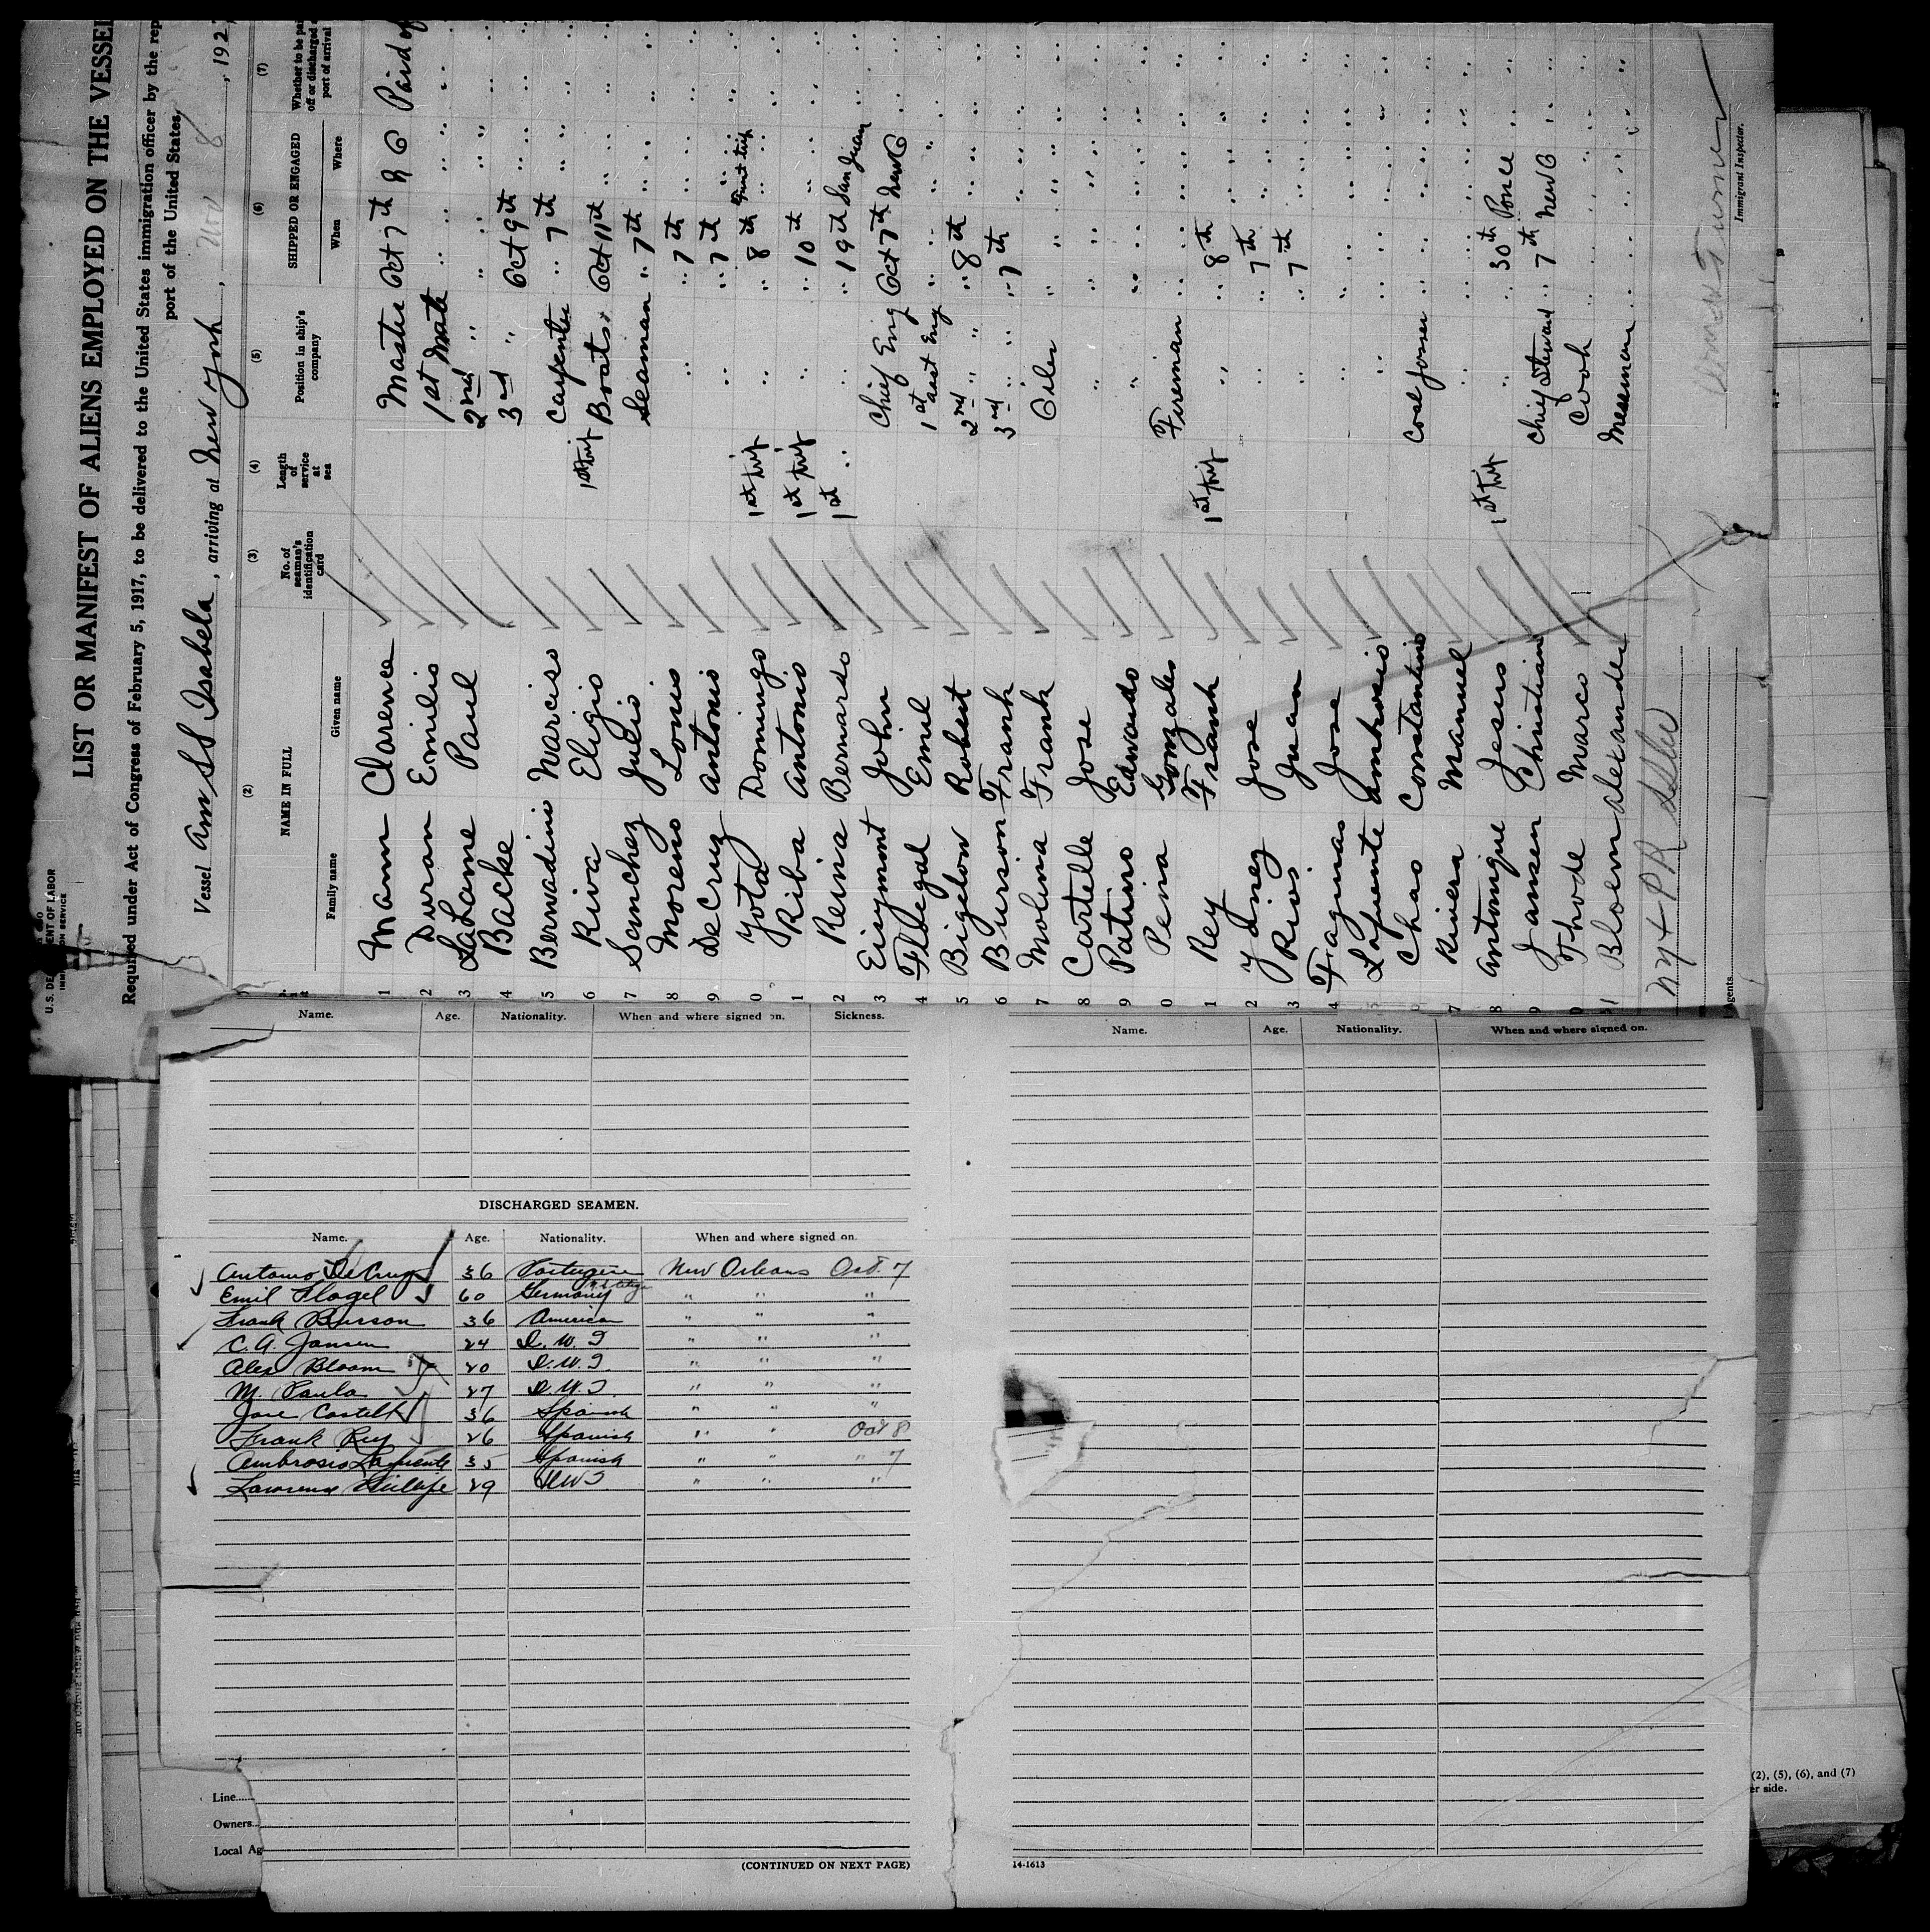 U.S. DE ENT OF LABOR
LIST OR MANIFEST OF ALIENS EMPLOYED ON THE VESSEL
Required under Act of Congress of February 5, 1917, to be delivered to the United States immigration officer by the rep
port of the United States
Vessel Am SS Isabela, arriving at New York, Nov 8, 192
(2) (3) (4) (5) (6) (7)
NAME IN FULL No. of seaman's identification card Length of service at sea Position in ship's company SHIPPED OR ENGAGED Whether to be pai off or discharged a port of arrival
Family name Given name When Where
1 Mann Clarence Master Oct 7th N O Paid of
2 Duran Emilio 1st Mate " " "
3 LaLane Paul 2nd " " " "
4 Backe 3rd " Oct 9th " "
5 Bernadino Narciso Carpenter " 7th " "
6 Riva Eligio 1st trip Boats. Oct 11th " "
7 Sanchez Julio Seaman " 7th " "
8 Moreno Louis " " 7th " "
9 DeCruz Antonio " " 7th " "
0 Yota Domingo 1st trip " " 8th first trip "
1 Riba Antonio 1st trip " " 10th " "
2 Reina Bernardo 1st " " " 19th San Juan "
3 Eisymont John Chief Eng Oct 7th New O "
4 Flogegal Emil 1st asst Eng " " " "
5 Bigelow Robert 2nd " " " 8th " "
6 Burson Frank 3rd " " " 7th " "
7 Molina Frank Oiler " " "
8 Cartelle Jose " " " "
9 Patino Edwardo " " " "
0 Peina Gonzales Fireman " " "
1 Rey Frank 1st trip " " 8th " "
2 Ydnez Jose " " 7th " "
3 Rios Juan " " 7th " "
4 Fagunas Jose " " " "
Lafuente Ambrosio " " " "
Chao Constantino Coal Passer " " "
7 Rivera Manuel " " " "
8 Antonique Jesus 1st trip " " 30th Ponce "
9 Jansen Christian Chief Steward " 7th New O "
0 Thode Marco Cook " " "
1 Bloem Alexander Messman " " "
NY + PR
Immigrant Inspector.
gents
Name. Age. Nationality. When and where signed on. Sickness.
DISCHARGED SEAMEN.
Name. Age. Nationality. When and where signed on.
Antonio DeCruz 36 Portugese New Orleans Oct. 7
Emil Flogel 60 Germany " " "
Frank Burson 36 American " " "
C. A. Jansen 24 D. W. I " " "
Alex Bloom 20 D. W. I " " "
M. Paula 27 D W. I. " " "
Jose Castell 36 Spanish " " "
Frank Rey 26 Spanish " " Oct 8
Ambrosio Lafuente 35 Spanish " " " 7
Lawrence 29 DWI " " "
Line
Owners
Local Ag
(CONTINUED ON NEXT PAGE)
Name. Age. Nationality. When and where signed on.
14-1613
(2), (5), (6), and (7)
er side.